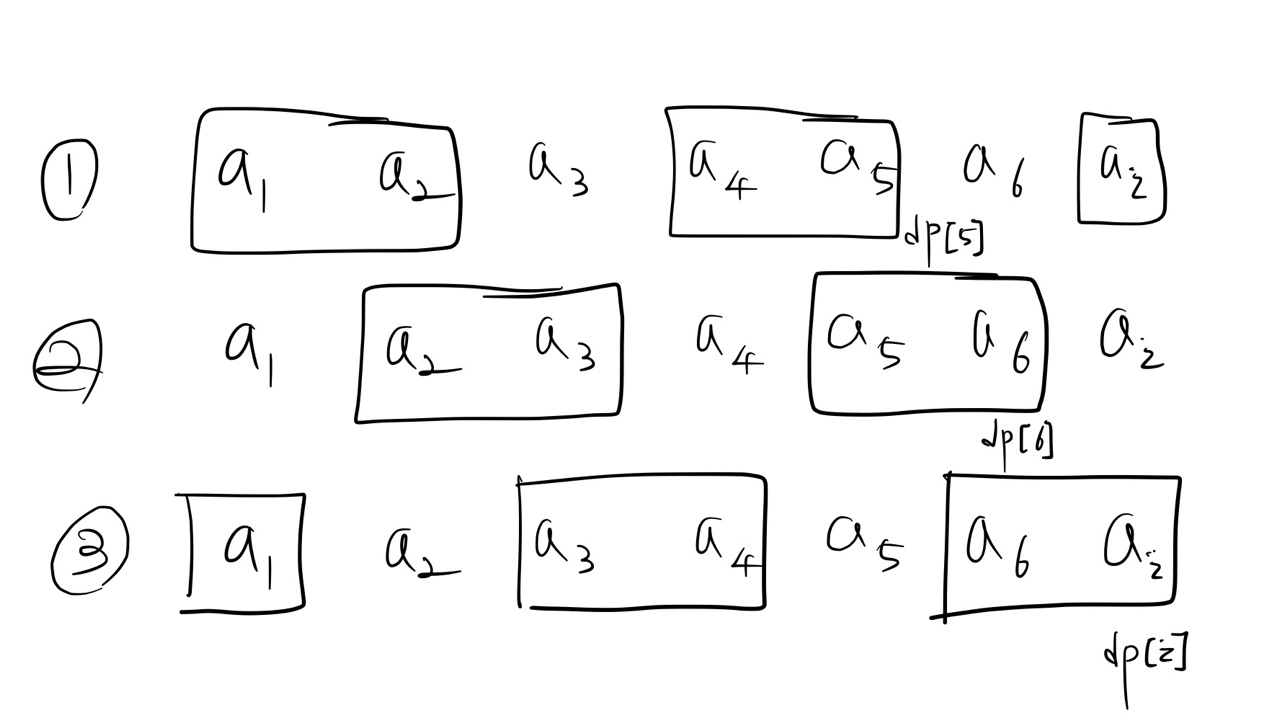 ① a₁ a₂ a₃ a₄ a₅ a₆ aᵢ
dp[5]
② a₁ a₂ a₃ a₄ a₅ a₆ aᵢ
dp[6]
③ a₁ a₂ a₃ a₄ a₅ a₆ aᵢ
dp[i]